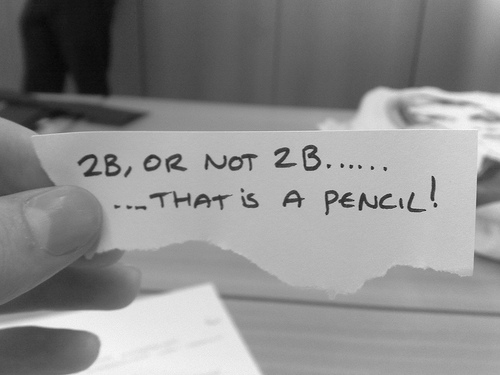 2B, OR NOT 2B......
....THAT is A PENCIL!